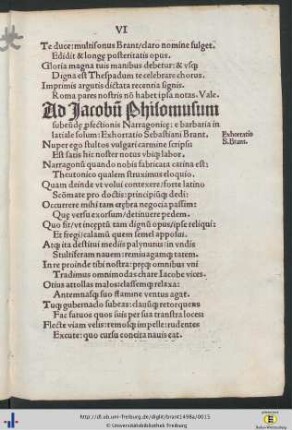 VI
Te duce: multisonus Brant/claro nomine fulget.
Edidit & longę posteritatis opus.
Gloria magna tuis manibus debetur: & vsq̃
Digna est Thespadum te celebrare chorus.
Imprimis argutis dictata recentia signis.
Roma pares nostris nō habet ipsa notas. Vale.
Ad Jacobū Philomusum
in
latiale solum: Exhortatio Sebastiani Brant.
Exhortatio
S. Brant.
Nuper ego stultos vulgari carmine scripsi
Est satis hic noster notus vbiq̃ labor.
Narragonū quando nobis fabricata carina est:
Theutonico qualem struximus eloquio.
Quam deinde vt volui contexere/forte latino
Scōmate pro doctis: principijsq̃ dedi:
Occurrere mihi tam crebra negocia passim:
Quę versu exorsum/detinuere pedem.
Quo fit/vt inceptū tam dignū opus/ipse reliqui:
Et fregi/calamū quem semel apposui.
Atq̃ ita destitui medijs palynurus: in vndis
Stultiferam nauem: remiq̃ agamq̃ ratem.
In te proinde tibi nostra: preq̃ omnibus vni
Tradimus omnimodas chare Iacobe vices.
Otius attollas malos: classemq̃ relaxa:
Antemnasq̃ suo stamine ventus agat.
Tuq̃ gubernaclo subeas: clausq̃ retorquens
Fac fatuos quos sais per sua transtra locen
Flecte viam velis: remosq̃ impelle: rudentes
Excute: quo cursu concita nauis eat.
http://dl.ub.uni-freiburg.de/diglit/brant1498a/0015
© Universitätsbibliothek Freiburg